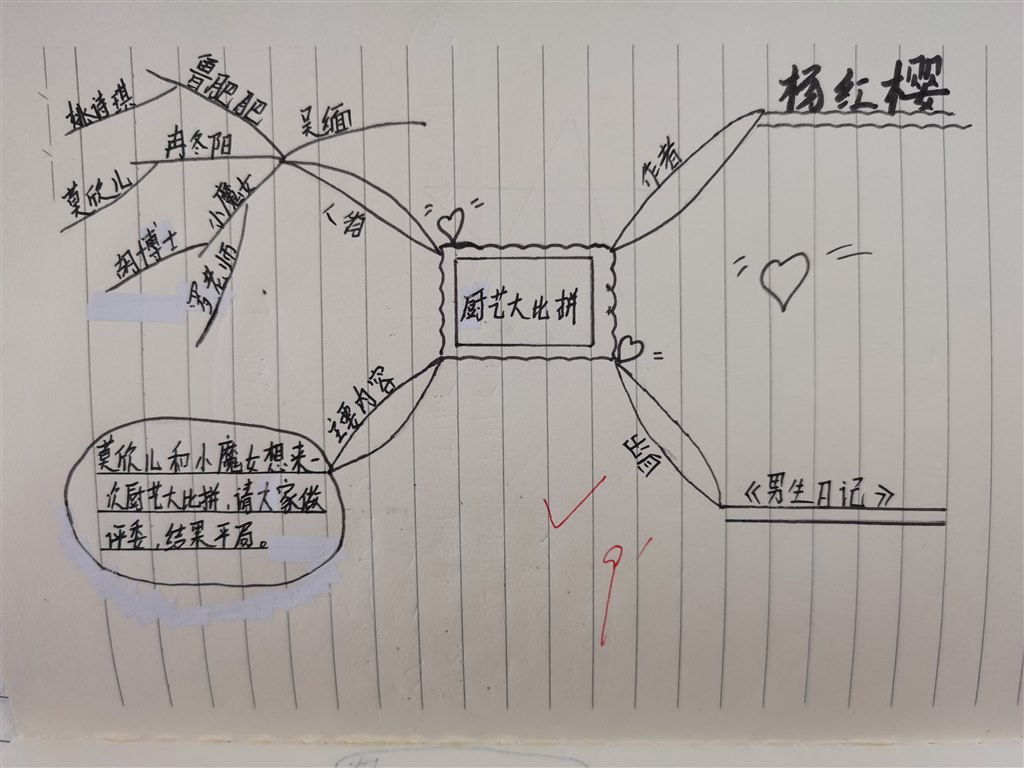 杨红樱
作者
鲁肥肥
桃诗琪
吴缅
冉冬阳
莫欣儿
小魔女
胡博士
罗老师
人物
厨艺大比拼
主要内容
莫欣儿和小魔女想来一
次厨艺大比拼,请大家做
评委,结果平局。
《男生日记》